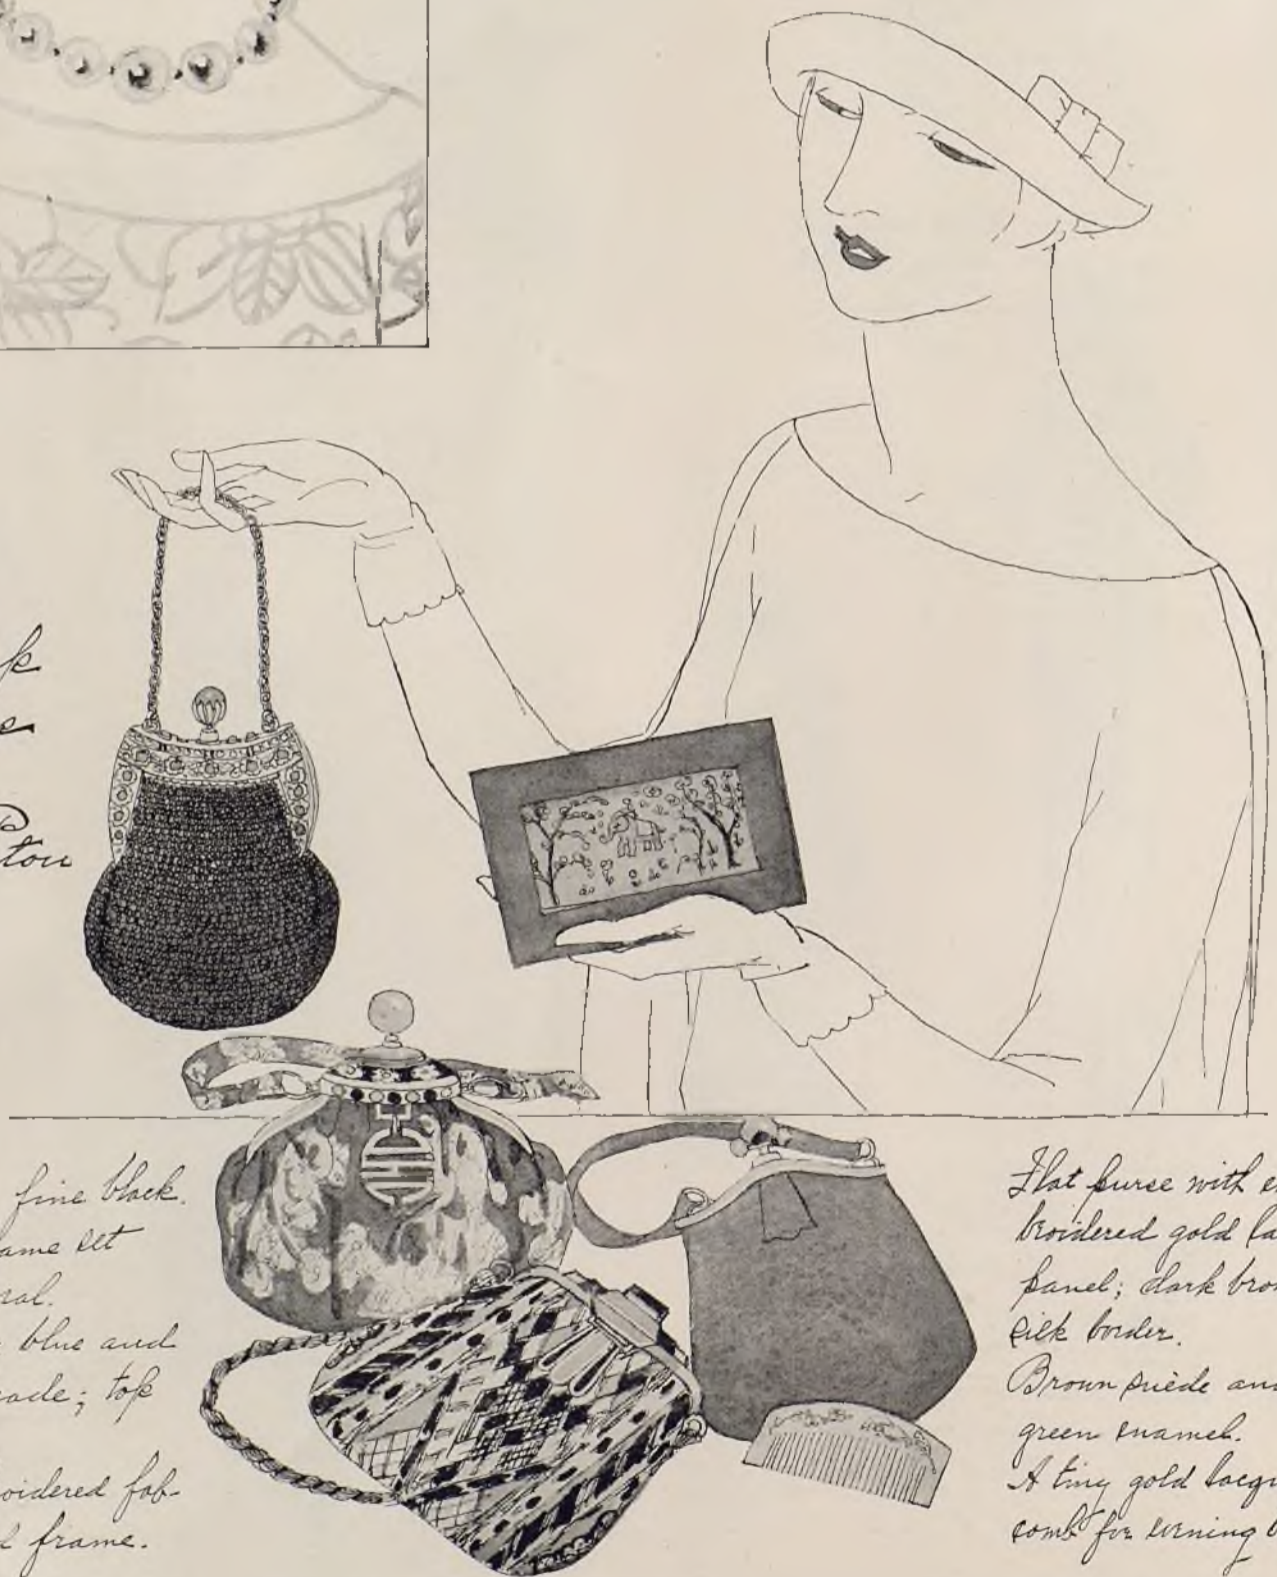 fine black.
ame set
ral.
blue and
cade; top
oidered fab-
frame.
Flat purse with e
broidered gold la
panel; dark bro
silk border.
Brown suède an
green enamel.
A tiny gold lacqu
comb for evening